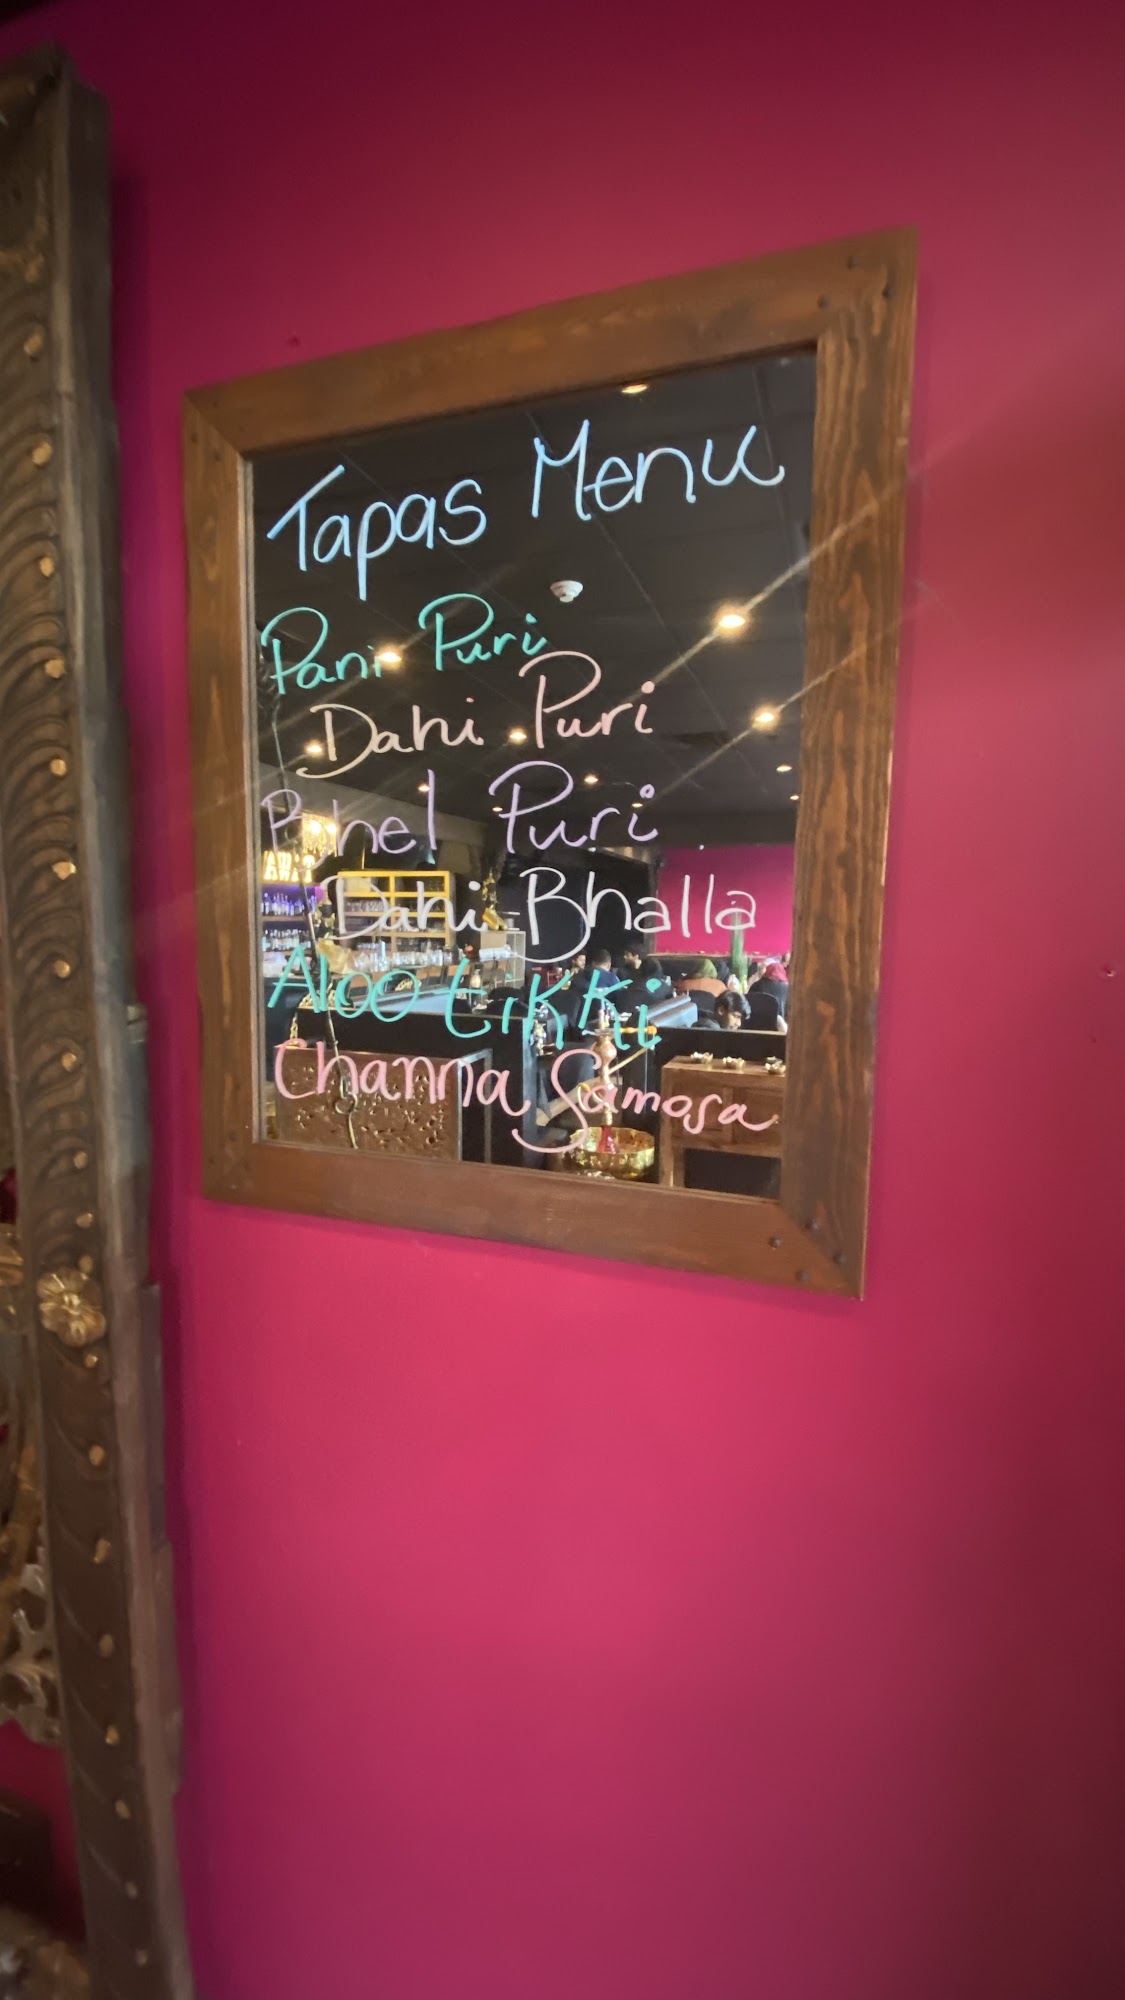 Tapas Menu
Pani Puri
Dahi Puri
Bhel Puri
Dahi Bhalla
Aloo tikki
Channa Samosa